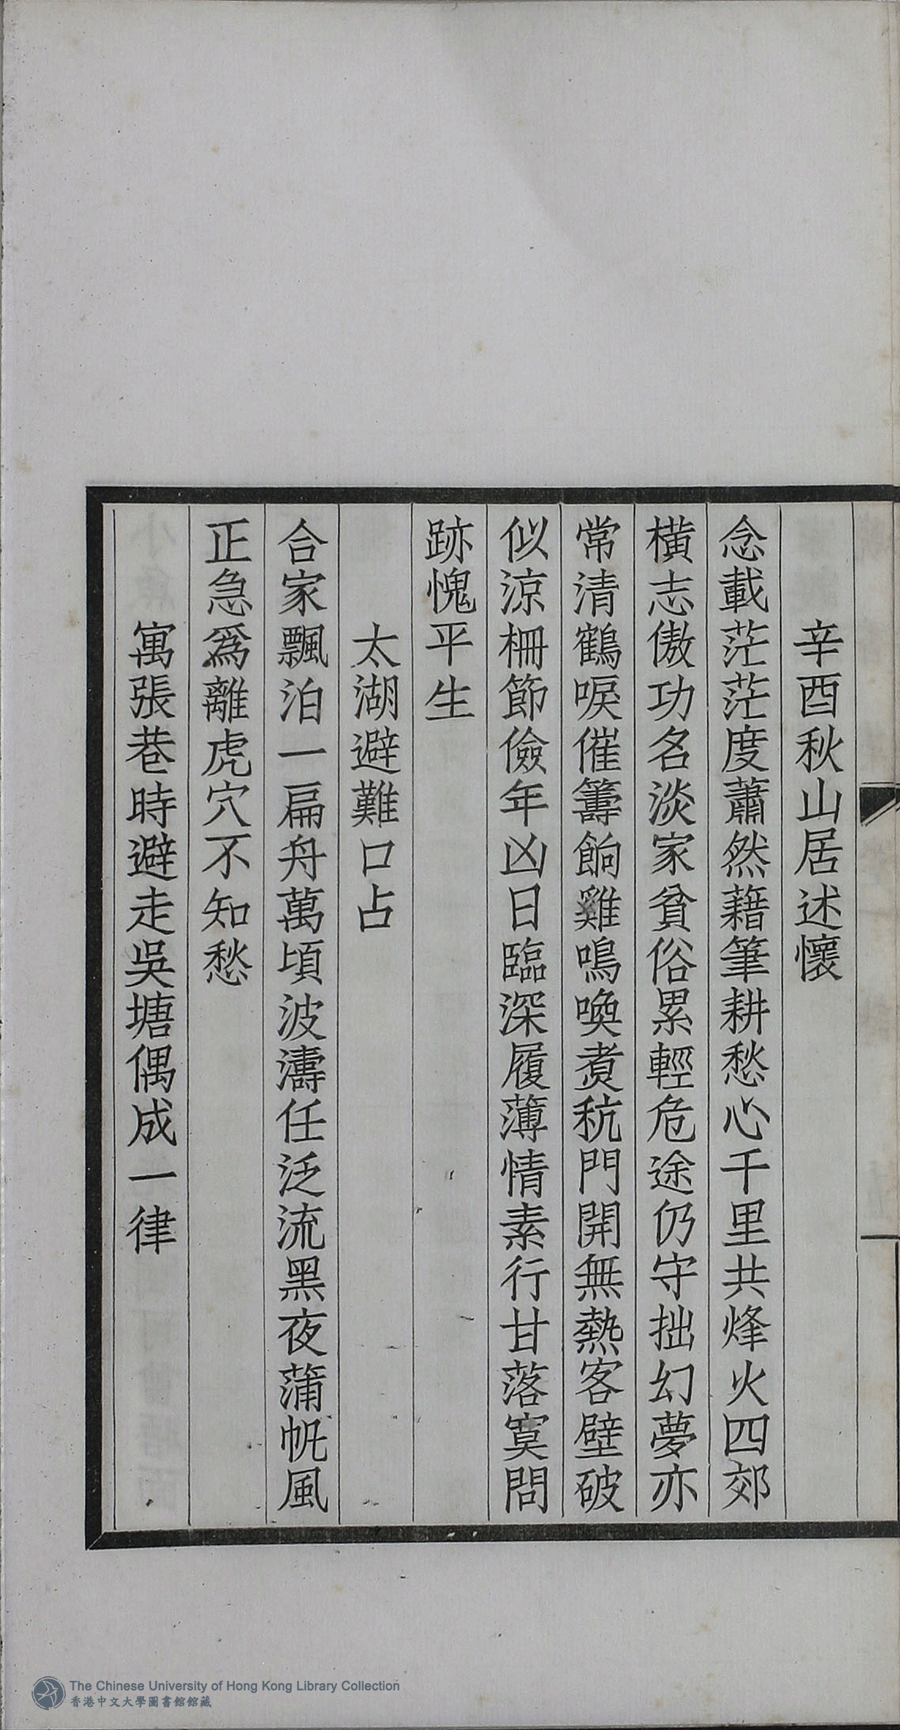 辛酉秋山居述懷
念載茫茫度蕭然藉筆耕愁心千里共烽火四郊
橫志傲功名淡家貧俗累輕危途仍守拙幻夢亦
常清鶴唳催籌餉雞鳴喚煑秔門開無熱客壁破
似涼柵節儉年凶日臨深履薄情素行甘落寞問
跡愧平生
太湖避難口占
合家飄泊一扁舟萬頃波濤任泛流黑夜蒲帆風
正急爲離虎穴不知愁
寓張巷時避走吳塘偶成一律
The Chinese University of Hong Kong Library Collection
香港中文大學圖書館館藏